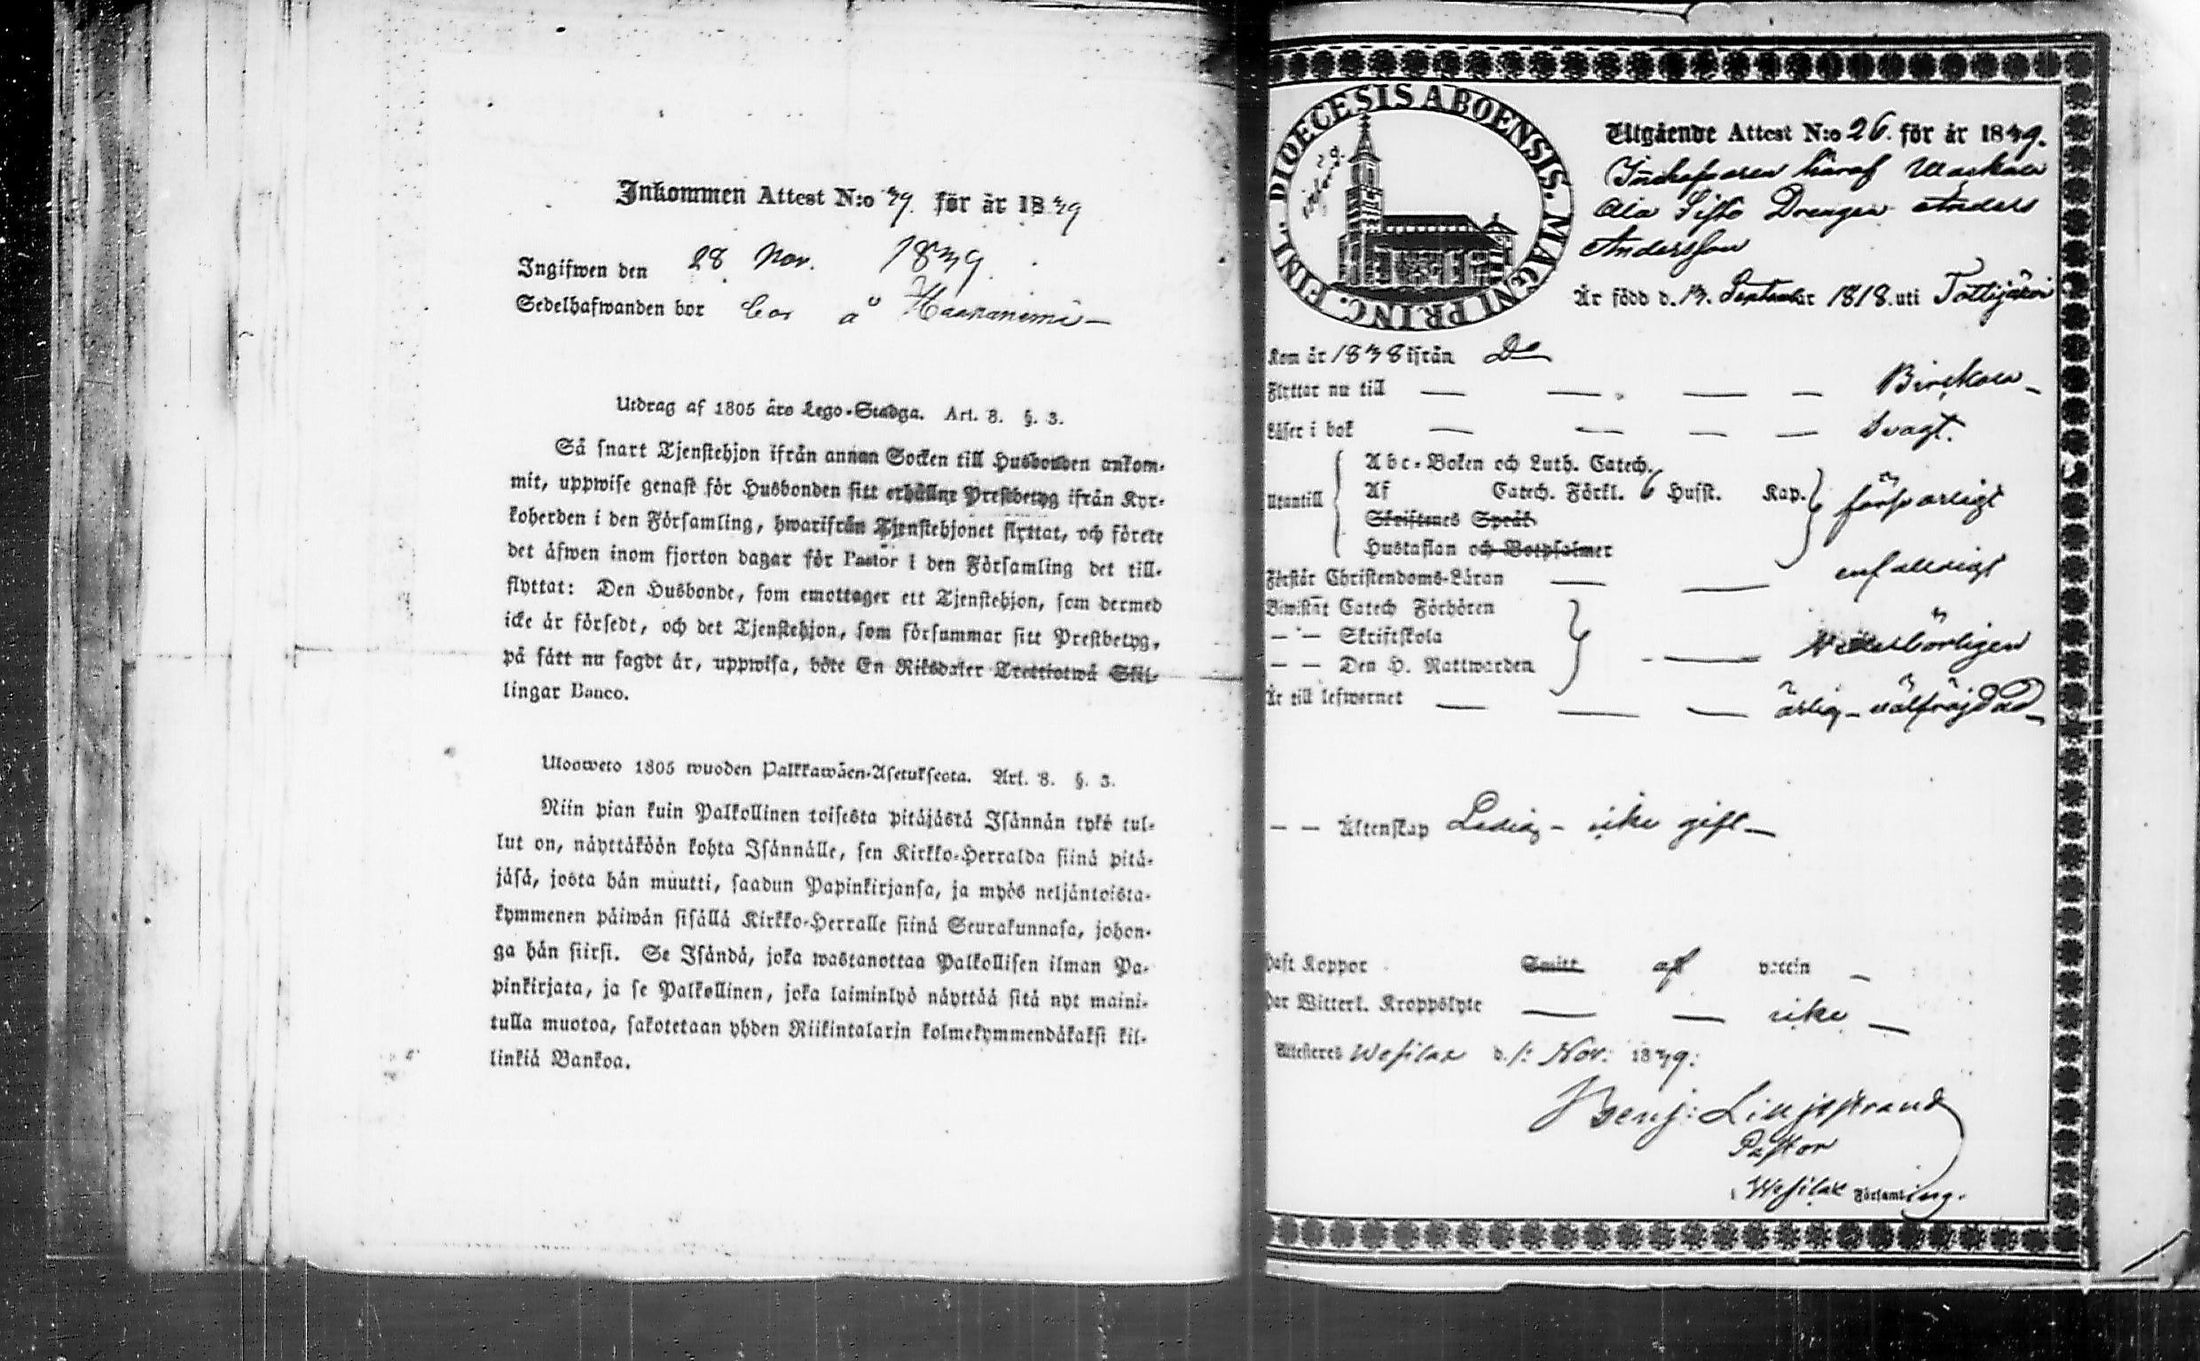 Inkommen Attest N:o 39. för år 1839
Ingifwen den 28 Nov. 1839.
Sedelhafwanden bor bor å Haananiemi
Utdrag af 1805 års Lego-Stadga. Art. 8. §. 3.
Så snart Tjenstehjon ifrån annan Socken till Husbonden ankom-
mit, uppwise genast för Husbonden sitt erhållne Prestbetyg ifrån Kyr-
koherden i den Församling, hwarifrån Tjenstehjonet flyttat, och förete
det äfwen inom fjorton dagar för Pastor i den Församling det till-
flyttat: Den Husbonde, som emottager ett Tjenstehjon, som dermed
icke är försedt, och det Tjenstehjon, som försummar sitt Prestbetyg,
på sätt nu sagdt är, uppwisa, böte En Riksdaler Trettiotwå Skil-
lingar Banco.
Ulosweto 1805 wuoden Palkkawäen-Asetuksesta. Art. 8. §. 3.
Niin pian kuin Palkollinen toisesta pitäjästä Isännän tykö tul-
lut on, näyttäköön kohta Isännälle, sen Kirkko-Herralda siinä pitä-
jäsä, josta hän muutti, saadun Papinkirjansa, ja myös neljäntoista-
kymmenen päiwän sisällä Kirkko-Herralle siinä Seurakunnasa, johon-
ga hän siirsi. Se Isändä, joka wastanottaa Palkollisen ilman Pa-
pinkirjata, ja se Palkollinen, joka laiminlyö näyttää sitä nyt maini-
tulla muotoa, sakotetaan yhden Riikintalarin kolmekymmendäkaksi kil-
linkiä Bankoa.
FINL. DIOECESIS ABOENSIS. MAGNI PRINC.
Utgående Attest N:o 26. för år 1839.
Innehafvaren häraf
Ala Sisto Drengen Anders
Andersson
Är född d. 13. September 1818. uti Tottijärvi
Kom år 1838 ifrån Do
Flyttar nu till — — — — Birckala
Läser i bok — — — — svagt.
Utantill
Abc-Boken och Luth. Catech.
Af Catech. Förkl. 6 Hufst. Kap.
Skriftenes Språk
Hustaflan och Botpsalmer
försvarligt
Förstår Christendoms-Läran — — enfaldigt
Biwistat Catech Förhören
— — Skriftskola
— — Den H. Nattwarden
Är till lefwernet — — — ärlig — välfräjdad
— — Äktenskap Ledig — icke gift
Haft Koppor Smitt af vaccin —
Har Witterl. Kroppslyte — — icke —
Attesteres Wesilax d. 1: Nov: 1839:
Benj: Liljestrand
Pastor
i Wesilax Församling.